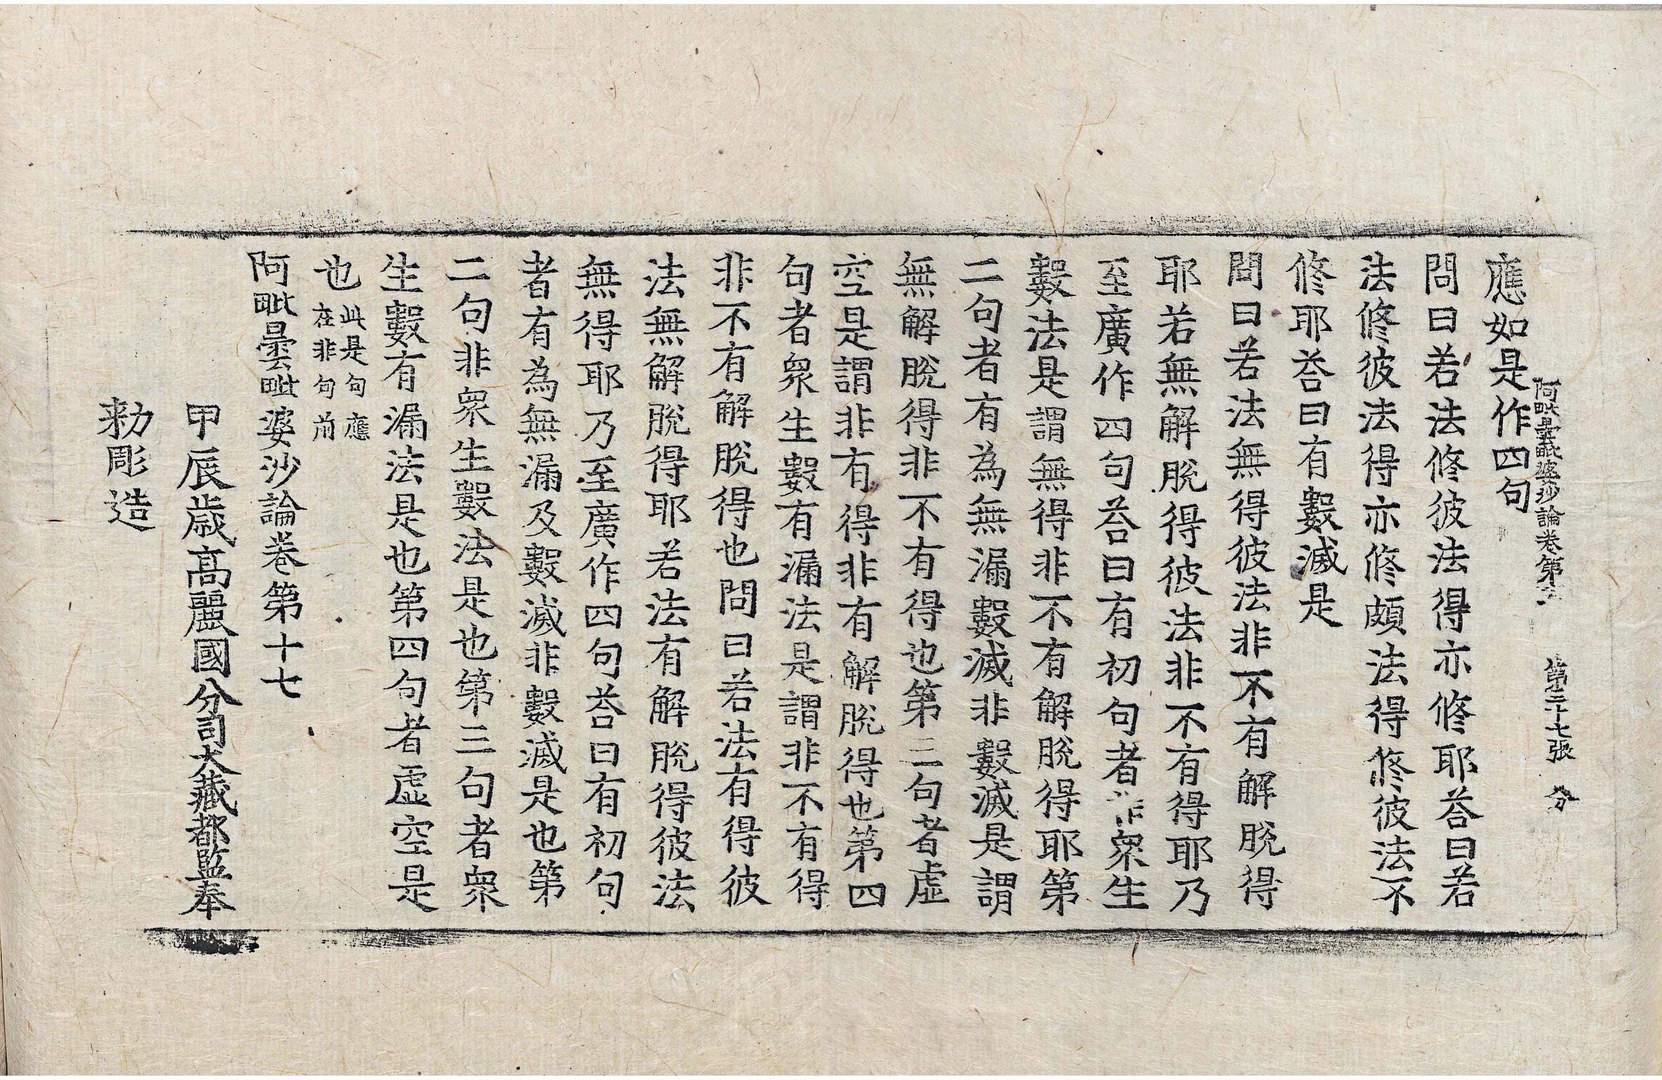 阿毗曇毗婆沙論卷第十七 第三十七張 分
應如是作四句
問曰若法修彼法得亦修耶荅曰若
法修彼法得亦修頗法得修彼法不
修耶荅曰有數滅是
問曰若法無得彼法非不有解脫得
耶若無解脫得彼法非不有得耶乃
至廣作四句荅曰有初句者非衆生
數法是謂無得非不有解脫得耶第
二句者有為無漏數滅非數滅是謂
無解脫得非不有得也第三句者虛
空是謂非有得非有解脫得也第四
句者衆生數有漏法是謂非不有得
非不有解脫得也問曰若法有得彼
法無解脫得耶若法有解脫得彼法
無得耶乃至廣作四句荅曰有初句
者有為無漏及數滅非數滅是也第
二句非衆生數法是也第三句者衆
生數有漏法是也第四句者虛空是
也此是句應
在非句前
阿毗曇毗婆沙論卷第十七
甲辰歲高麗國分司大藏都監奉
勑彫造